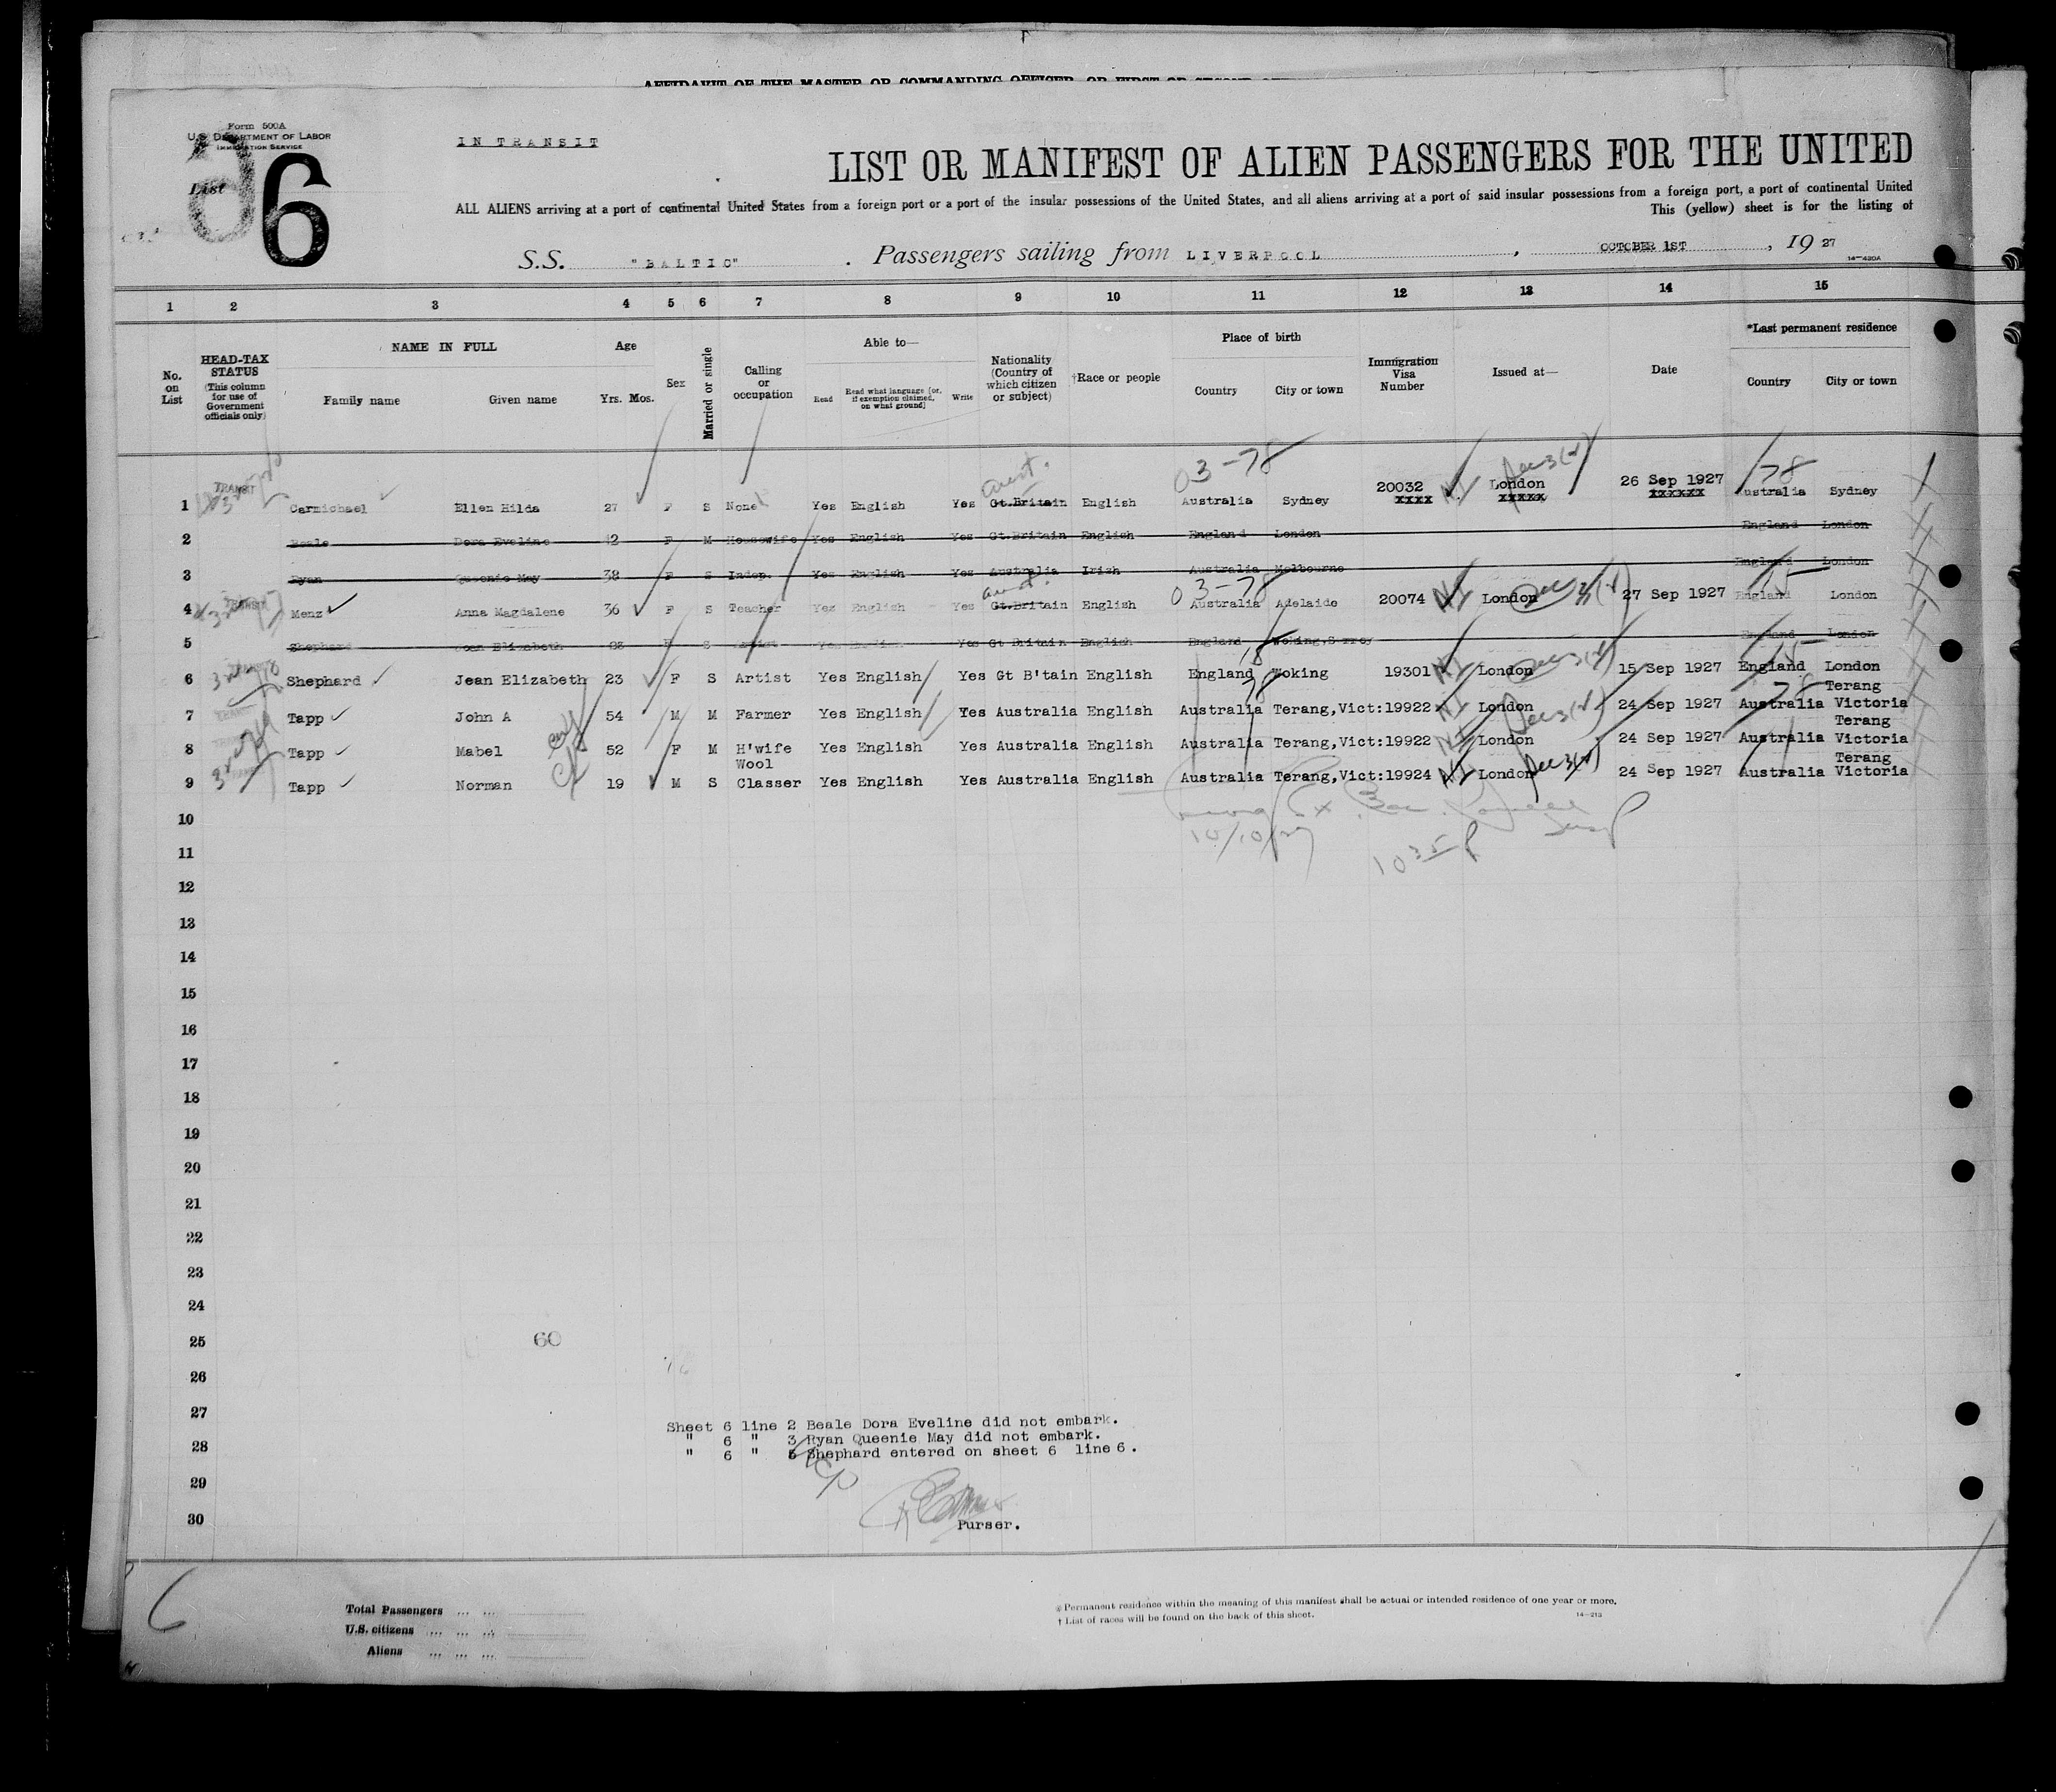 AFFIDAVIT OF THE MASTER OR COMMANDING OFFICER, OR FIRST OR SECOND
Form 500A
U.S. DEPARTMENT OF LABOR
IMMIGRATION SERVICE
List 6
IN TRANSIT
LIST OR MANIFEST OF ALIEN PASSENGERS FOR THE UNITED
ALL ALIENS arriving at a port of continental United States from a foreign port or a port of the insular possessions of the United States, and all aliens arriving at a port of said insular possessions from a foreign port, a port of continental United
This (yellow) sheet is for the listing of
S.S. "BALTIC". Passengers sailing from LIVERPOOL, OCTOBER 1ST, 19 27
14-430A
1 2 3 4 5 6 7 8 9 10 11 12 13 14 15
No. on List
HEAD-TAX STATUS (This column for use of Government officials only)
NAME IN FULL
Family name Given name
Age
Yrs. Mos.
Sex
Married or single
Calling or occupation
Able to—
Read Read what language [or, if exemption claimed, on what ground] Write
Nationality (Country of which citizen or subject)
†Race or people
Place of birth
Country City or town
Immigration Visa Number
Issued at—
Date
*Last permanent residence
Country City or town
03-78 78
Aust.
1 TRANSIT Carmichael Ellen Hilda 27 F S None Yes English Yes Gt.Britain English Australia Sydney 20032 xxxx London xxxxx 26 Sep 1927 xxxxxx Australia Sydney
2 Beale Dora Eveline 42 F M Housewife Yes English Yes Gt.Britain English England London England London
3 Ryan Queenie May 38 F S Indep. Yes English Yes Australia Irish Australia Melbourne England London
Aust. 03-78
4 TRANSIT Menz Anna Magdalene 36 F S Teacher Yes English Yes Gt.Britain English Australia Adelaide 20074 London 27 Sep 1927 England London
5 Shephard Jean Elizabeth 23 F S Artist Yes English Yes Gt Britain English England Woking,Surrey England London
6 TRANSIT Shephard Jean Elizabeth 23 F S Artist Yes English Yes Gt B'tain English England Woking 19301 London 15 Sep 1927 England London
7 Tapp John A 54 M M Farmer Yes English Yes Australia English Australia Terang,Vict: 19922 London 24 Sep 1927 Australia Terang Victoria
8 Tapp Mabel 52 F M H'wife Yes English Yes Australia English Australia Terang,Vict: 19922 London 24 Sep 1927 Australia Terang Victoria
9 Tapp Norman 19 M S Wool Classer Yes English Yes Australia English Australia Terang,Vict: 19924 London 24 Sep 1927 Australia Terang Victoria
10
10/10/27
11
12
13
14
15
16
17
18
19
20
21
22
23
24
25 60
26
27
Sheet 6 line 2 Beale Dora Eveline did not embark.
" 6 " 3 Ryan Queenie May did not embark.
28
" 6 " 5 Shephard entered on sheet 6 line 6.
29
30
Purser.
6
Total Passengers
U.S. citizens
Aliens
* Permanent residence within the meaning of this manifest shall be actual or intended residence of one year or more.
† List of races will be found on the back of this sheet. 14-213